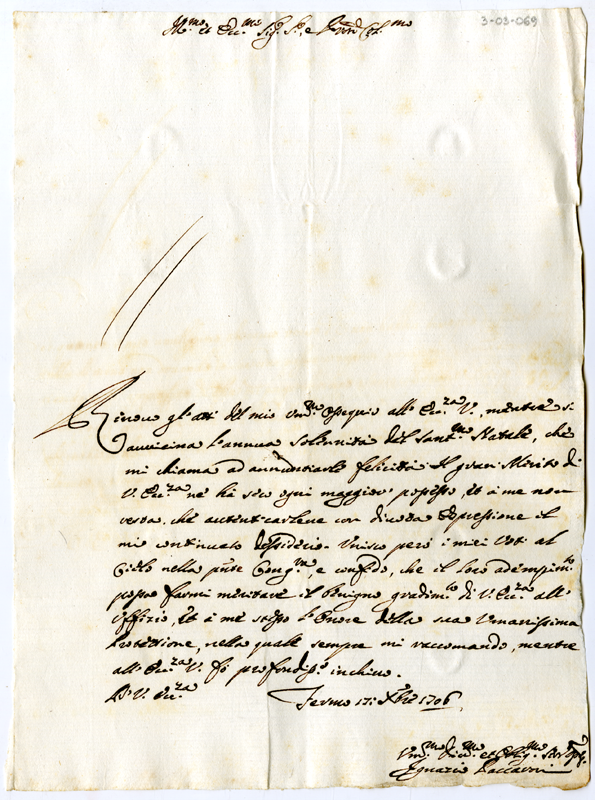 3-03-069
Ill.mo et Ecc.mo Sig.r S.r e P.ron Col.mo
Rinovo gl'atti del mio um.mo ossequio all'Ecc.za V., mentre si
avvicina l'annua solennità del Sant.mo Natale, che
mi chiama ad annuntiarle felicità. Il gran Merito di
V. Ecc.za ne hà seco ogni maggior possesso, et à me non
resta, che autenticarlene con divota espressione il
mio continuato desiderio. Unisco però i miei Voti al
Cielo nella p.nte Cong.ra, e confido, che il loro adempim.to
possa farmi meritare il benigno gradim.to di V. Ecc.za all'
Offizio, et à me stesso l'onore della sua umanissima
Protezzione, nella quale sempre mi raccomando, mentre
all'Ecc.za V. fò profondiss.o inchino.
Di V. Ecc.za
Fermo 17: Xbre 1706
Um.mo Div.mo et Oblig.mo Ser.re
Ignazio